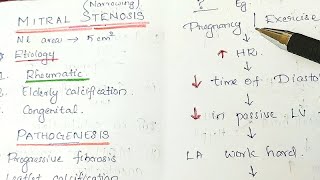 (Narrowing)
MITRAL STENOSIS
Nl area → 5 cm²
Etiology
Rheumatic
2. Elderly calcification.
Congenital.
PATHOGENESIS
Progressive fibrosis
Leaflet calcification
Eg.
Pregnancy Exercise
↓
↑ HR.
↓
↓ time of Diasto
↓
↓ in passive LV
↓
LA work hard.
↓